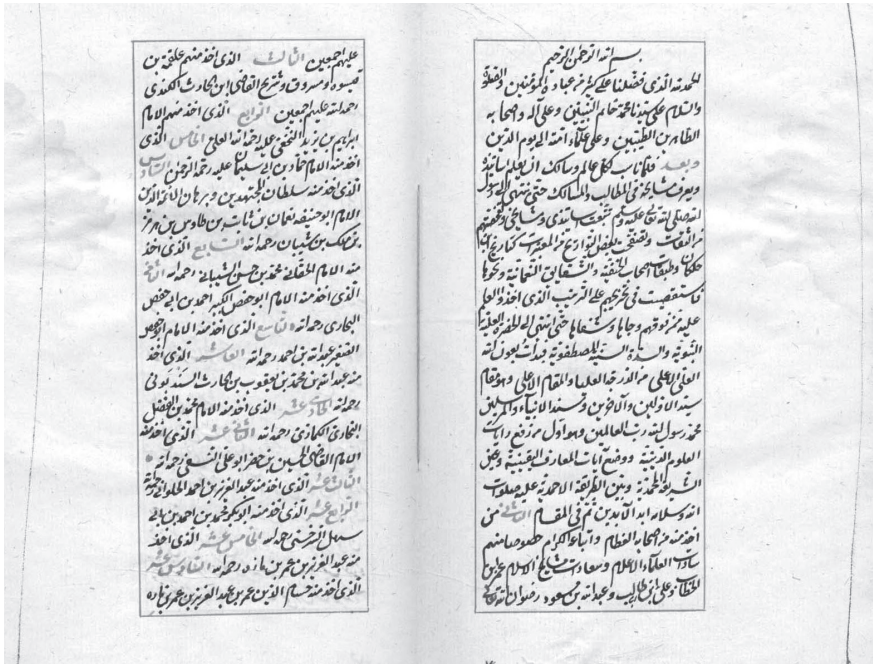 بسم الله الرحمن الرحيم
الحمد لله الذى فضلنا على كثير من عباده المؤمنين والصلوة
والسلام على سيدنا محمد خاتم النبيين وعلى آله واصحابه
الطاهرين الطيبين وعلى علماء امته الى يوم الدين
وبعد فلما ناب لكل عالم وسالك ان يعلم اساتذه
ويعرف مشايخه فى المطالب والمسالك حتى ينتهى الى رسول
الله صلى الله تعالى عليه وسلم اساتذى ومشايخى
من الثقات بعض التواريخ من المعتبرات كتاريخ ابن
خلكان وطبقات اصحاب الحنفية والشقايق النعمانية ونحوها
فاستقصيت فى تخريجهم على الترتيب الذى اخذ والعلم
عليه ممن فوقهم وجاها وشفاها حتى انتهى الى الحضرة العلية
النبوية والسدة السنية المصطفوية فبدأت بعون الله
العلى الاعلى من الدرجة العليا والمقام الاعلى وهو مقام
سيد الاولين والآخرين وسند الانبياء والمرسلين
محمد رسول الله رب العالمين وهو اول من رفع رايات
العلوم الدينية ووضع آيات المعارف اليقينية وبين
الشريعة المحمدية وبين الطريقة الاحمدية عليه صلوات
الله وسلامه ابد الآبدين ثم فى المقام الثانى من
اخذ منه من اصحابه العظام واتباعه الكرام خصوصا منهم
سادات العلماء الاعلام وسعادات مشايخ الاسلام عمر بن
الخطاب وعلى بن ابى طالب وعبد الله بن مسعود رضوان الله تعالى
عليهم اجمعين الثالث الذى اخذ منهم علقمة بن
قيس ومسروق وشريح القاضى ابن الحارث الكندى
رحمة الله عليهم اجمعين الرابع الذى اخذ منهم الامام
ابراهيم بن يزيد النخعى عليه رحمة الله العلى الخامس الذى
اخذ منه الامام حماد بن ابى سليمان عليه رحمة الرحمن السادس
الذى اخذ منه سلطان المجتهدين وبرهان الائمة الدين
الامام ابو حنيفه نعمان بن ثابت بن طاوس بن هرمز
بن ملك بن شيبان رحمه الله السابع الذى اخذ
منه الامام الحقانى محمد بن حسن الشيبانى رحمه الله الثامن
الذى اخذ منه الامام ابو حفص الكبير احمد بن ابى حفص
البخارى رحمه الله التاسع الذى اخذ منه الامام ابو حفص
الصغير عبد الله بن احمد رحمه الله العاشر الذى اخذ
منه عبد الله بن محمد بن يعقوب بن الحارث السبذمونى
رحمه الله الحادى عشر الذى اخذ منه الامام محمد بن الفضل
البخارى الكمارى رحمه الله الثانى عشر الذى اخذ منه
الامام القاضى الحسين بن خضر ابو على النسفى رحمه الله
الثالث عشر الذى اخذ منه عبد العزيز بن احمد الحلوانى رحمه الله
الرابع عشر الذى اخذ منه ابو بكر محمد بن احمد بن ابى
سهل السرخسى رحمه الله الخامس عشر الذى اخذ
منه عبد العزيز بن عمر بن مازه رحمه الله السادس عشر
الذى اخذ منه حسام الدين عمر بن عبد العزيز بن عمر بن مازه